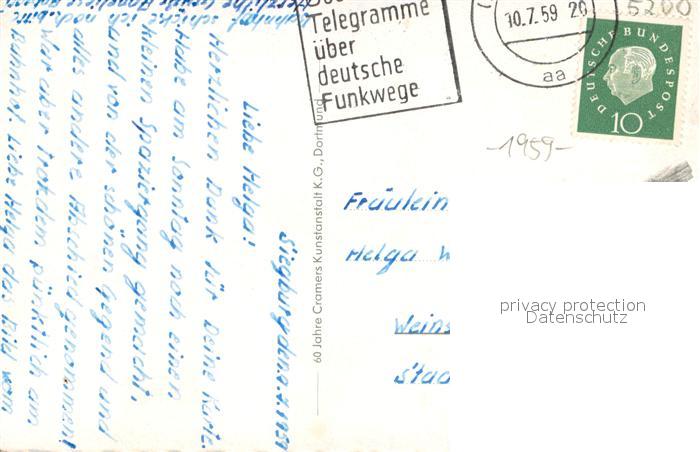 Telegramme
über
deutsche
Funkwege
10.7.59 20
aa
5200
DEUTSCHE BUNDESPOST
10
-1959-
Siegburg, den 9.7.1959
Liebe Helga!
Herzlichen Dank für Deine Karte.
Habe am Sonntag noch einen
kleinen Spaziergang gemacht,
und von der schönen Gegend und
alles andere Abschied genommen!
War aber trotzdem pünktlich am
Bahnhof. Liebe Helga das Bild vom
Bahnhof schicke ich noch.
Herzliche
60 Jahre Cramers Kunstanstalt K.G., Dortmund
Fräulein
Helga W
Weins
Stad
privacy protection
Datenschutz